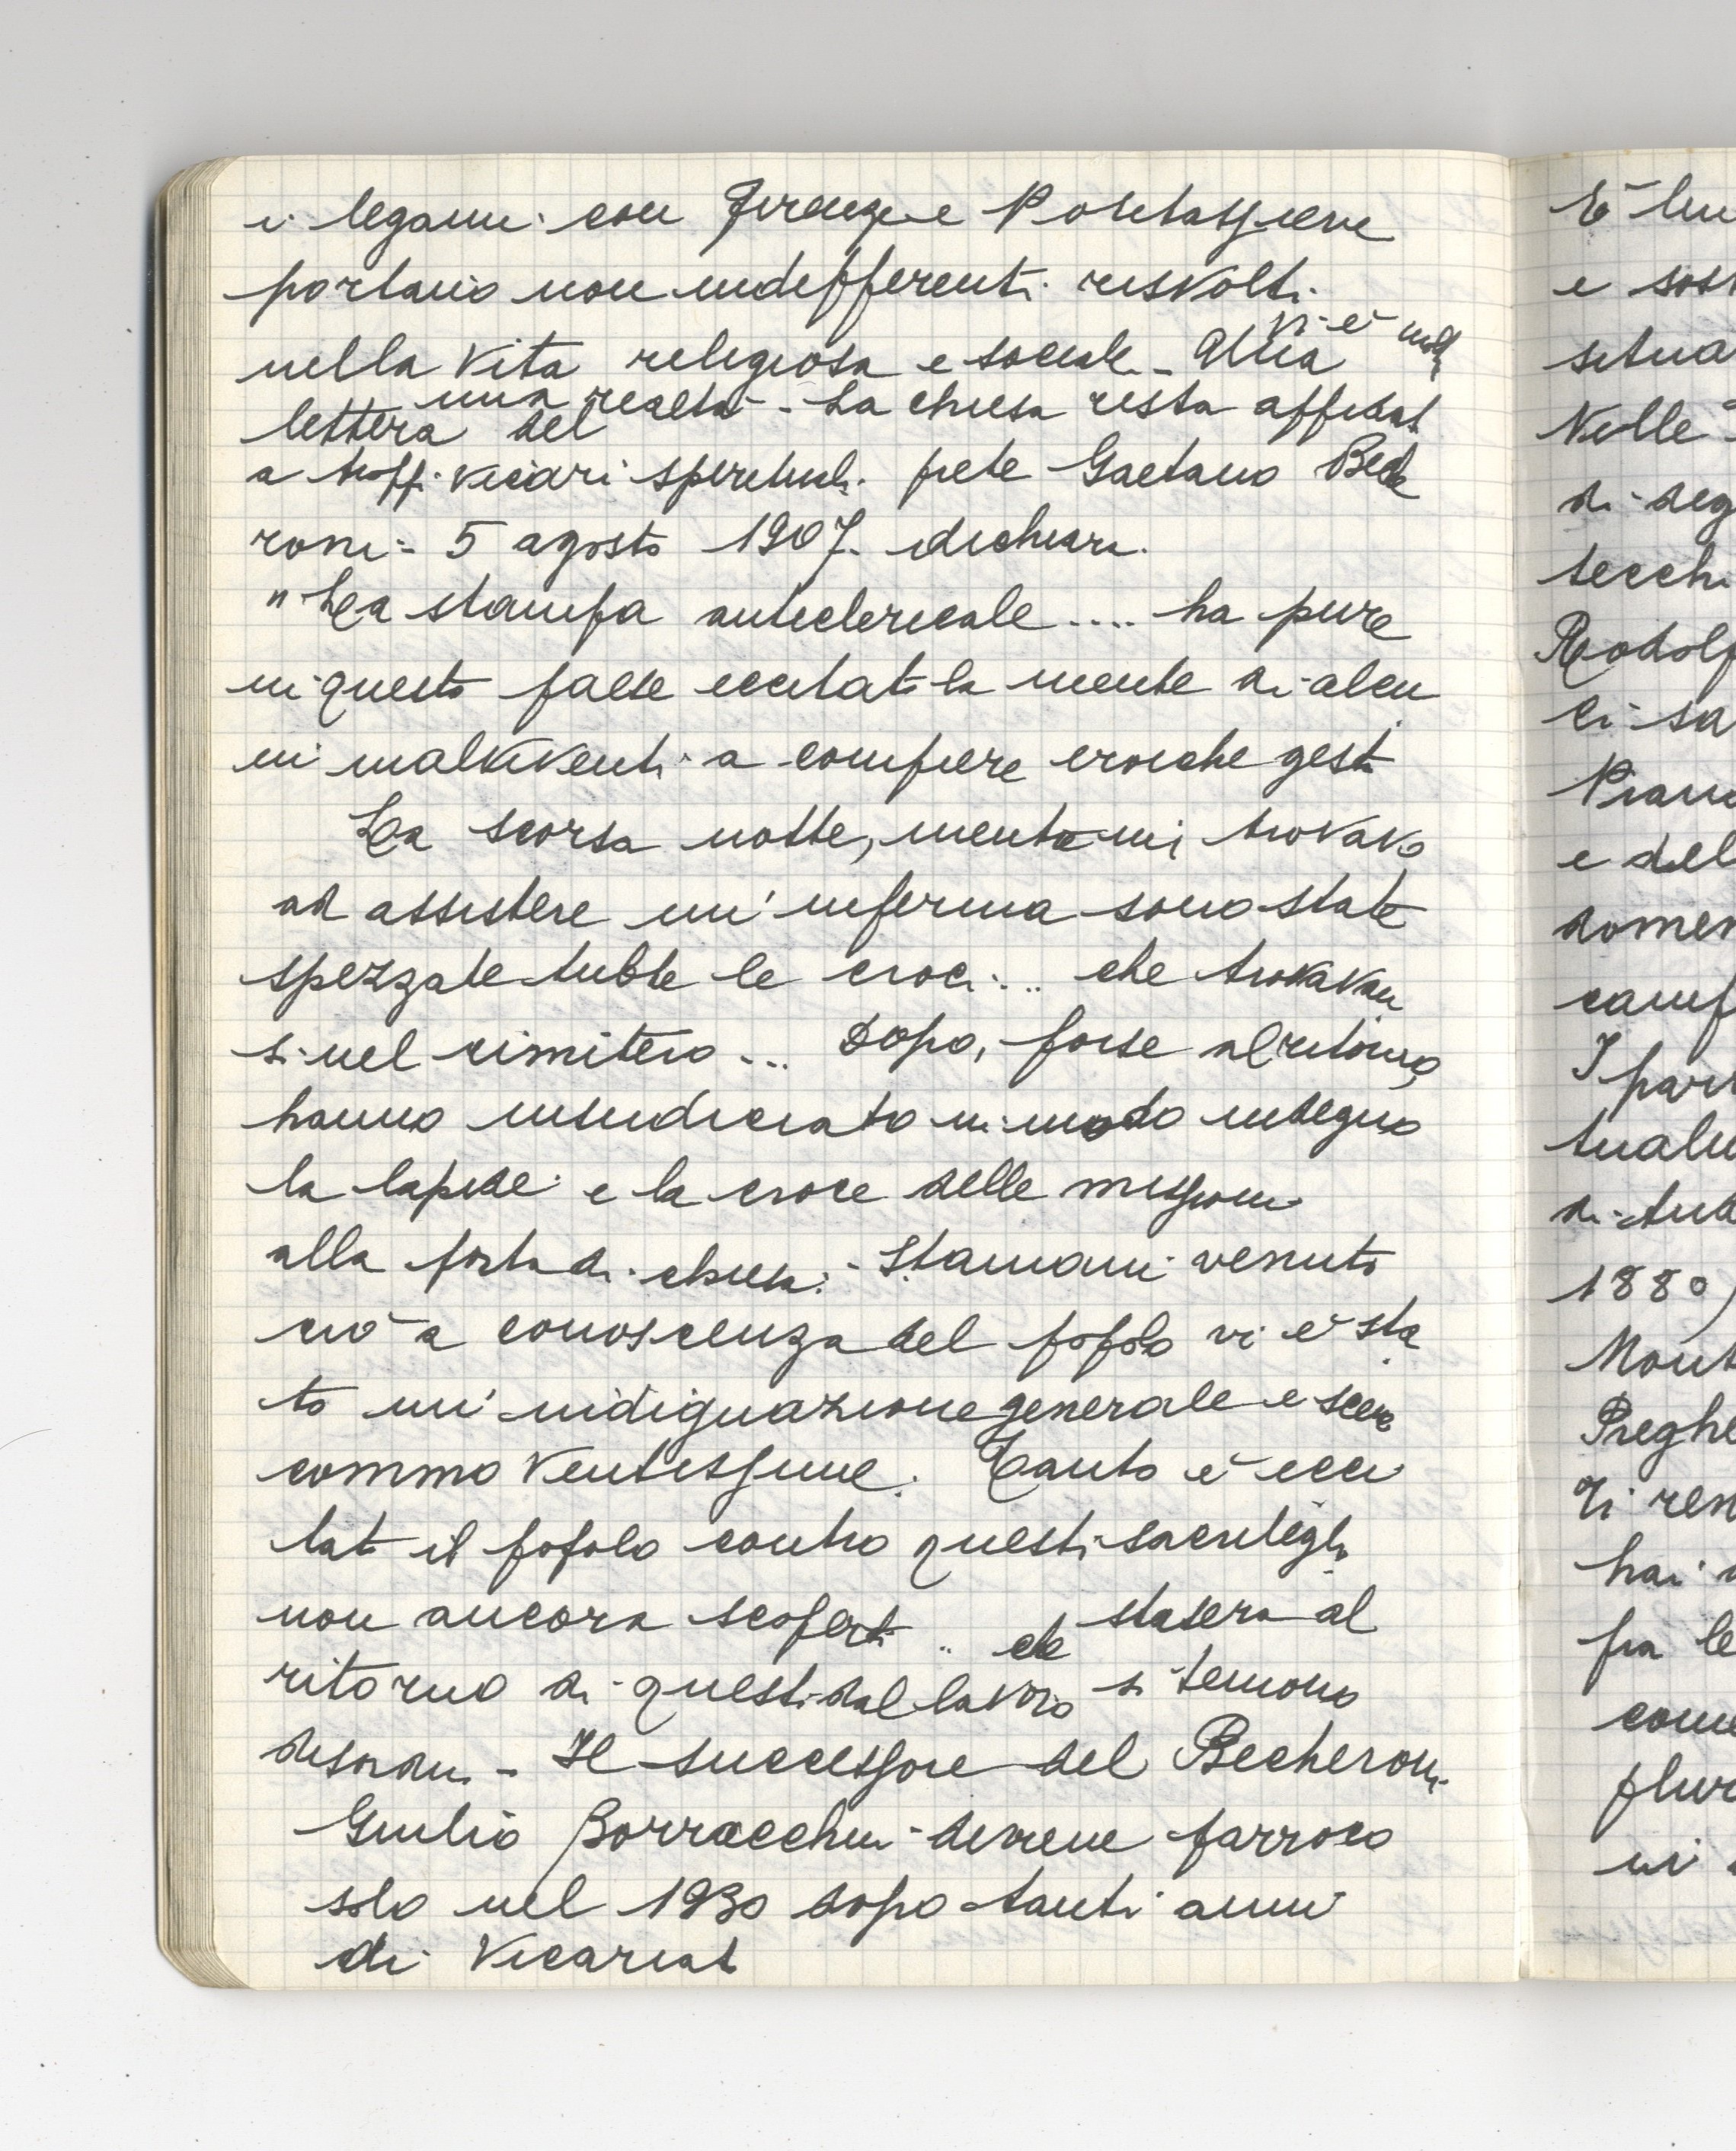 i legami con Firenze e Pontassieve
portano non indifferenti risvolti
nella vita religiosa e sociale - Una
vi è
lettera del
una realtà - La chiesa resta affidat
a troppi vicari spirituali. prete Gaetano Beche
roni - 5 agosto 1907. dichiara.
"La stampa anticlericale .... ha pure
in questo paese eccitato la mente di alcu
ni malviventi a compiere eroiche gesta
La scorsa notte, mentre mi trovavo
ad assistere un' inferma sono state
spezzate tutte le croci ... che trovavan
si nel cimitero ... Dopo, forse al ritorno,
hanno insudiciato in modo indegno
la lapide e la croce delle missioni
alla porta di chiesa. - Stamani venuto
ciò a conoscenza del popolo vi è sta
to un' indignazione generale e
Tanto è ecci
tato il popolo contro questi sacrileghi
non ancora scoperti .. che stasera al
ritorno di questi dal lavoro si temono
disordini - Il successore del Becheroni
Giulio Borracchini diviene parroco
solo nel 1930 dopo tanti anni
di Vicariato
È
e
situa
Nelle
di deg
tecchi
Rodolf
ci sa
e del
domen
I par
1880)
Mont
Preghe
Ti ren
hai
fra le
come